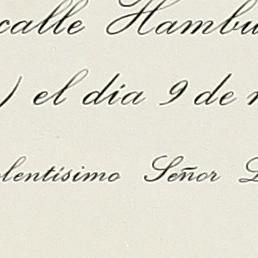 calle Hambu
) el día 9 de
lentísimo Señor